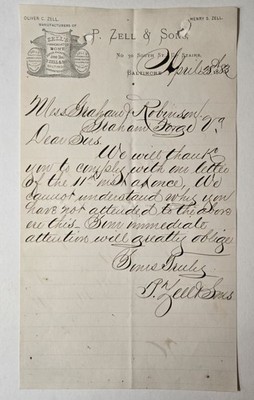 OLIVER C. ZELL.
HENRY S. ZELL.
MANUFACTURERS OF
P. ZELL & SONS.
ZELL'S
BONE
DISSOLVED
No 30 SOUTH ST. UP STAIRS.
BALTIMORE April 25th 1883
Mess Graham & Robinson
Graham Forge Va
Dear Sirs
We will thank
you to comply with our letter
of the 11th inst at once, We
cannot understand why you
have not attended to the
ere this. Your immediate
attention will greatly oblige
Yours Truly
P. Zell & Sons